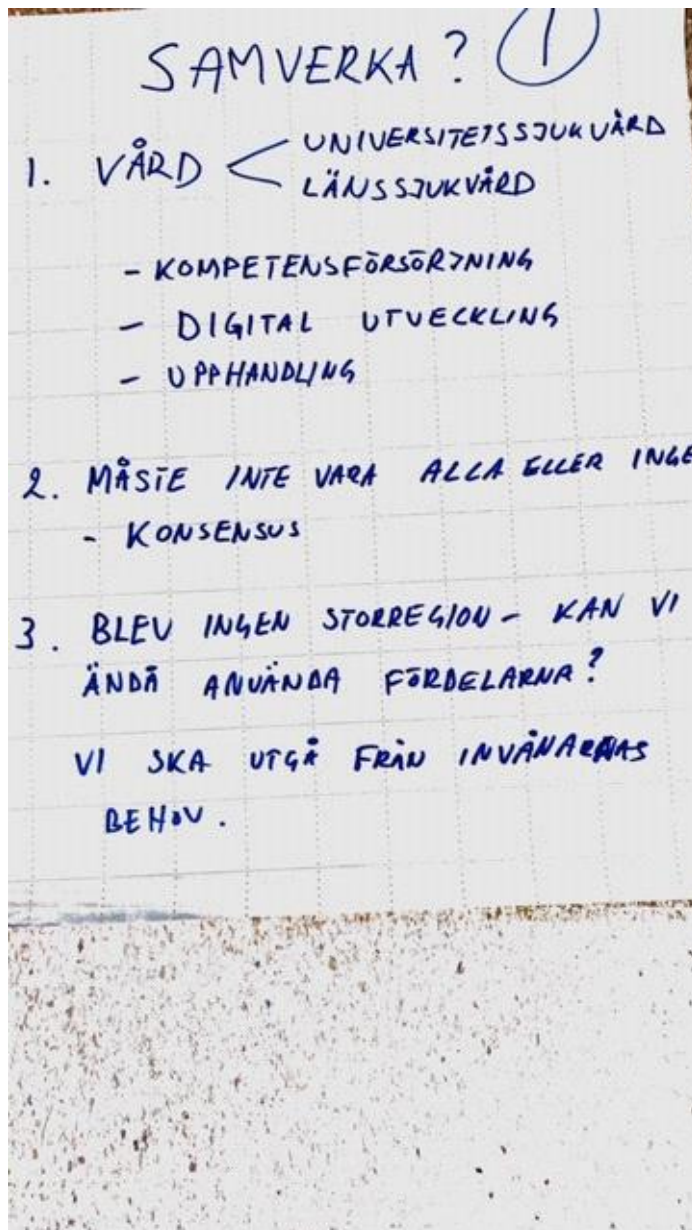 SAMVERKA? 1
1. VÅRD < UNIVERSITETSSJUKVÅRD
LÄNSSJUKVÅRD
- KOMPETENSFÖRSÖRJNING
- DIGITAL UTVECKLING
- UPPHANDLING
2. MÅSTE INTE VARA ALLA ELLER INGE
- KONSENSUS
3. BLEV INGEN STORREGION - KAN VI
ÄNDÅ ANVÄNDA FÖRDELARNA?
VI SKA UTGÅ FRÅN INVÅNARNAS
BEHOV.